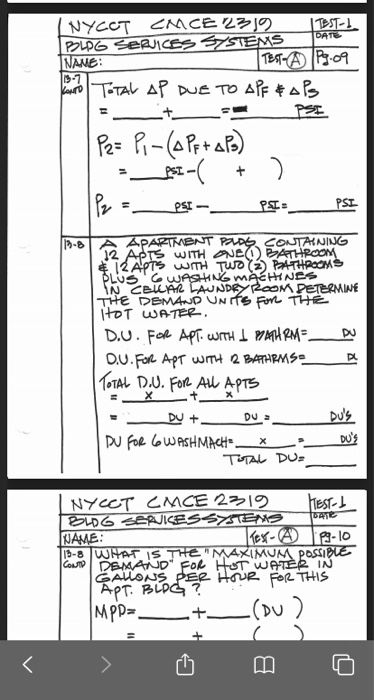 NYCCT CMCE 2319 TEST-1
BLDG SERVICES SYSTEMS DATE
NAME: TEST-A Pg-09
13-7 CONTD TOTAL ΔP DUE TO ΔPF & ΔPS
= ____ + ____ = ____ PSI
P2 = P1 - (ΔPF + ΔPS)
= ____ PSI - ( + )
P2 = ____ PSI - ____ PSI = ____ PSI
13-8 A APARTMENT BLDG CONTAINING
12 APTS WITH ONE(1) BATHROOM
& 12 APTS WITH TWO (2) BATHROOMS
PLUS 6 WASHING MACHINES
IN CELLAR LAUNDRY ROOM DETERMINE
THE DEMAND UNITS FOR THE
HOT WATER.
D.U. FOR APT. WITH 1 BATHRM = ____ DU
D.U. FOR APT WITH 2 BATHRMS = ____ DU
TOTAL D.U. FOR ALL APTS
= ____ x ____ + ____ x ____
= ____ DU + ____ DU = ____ DU'S
DU FOR 6 WASHMACH = ____ x ____ = ____ DU'S
TOTAL DU = ____
NYCCT CMCE 2319 TEST-1
BLDG SERVICES SYSTEMS DATE
NAME: TEST-A Pg-10
13-8 CONTD WHAT IS THE "MAXIMUM POSSIBLE
DEMAND" FOR HOT WATER IN
GALLONS PER HOUR FOR THIS
APT. BLDG?
MPD = ____ + ____ (DU )
= + ( )